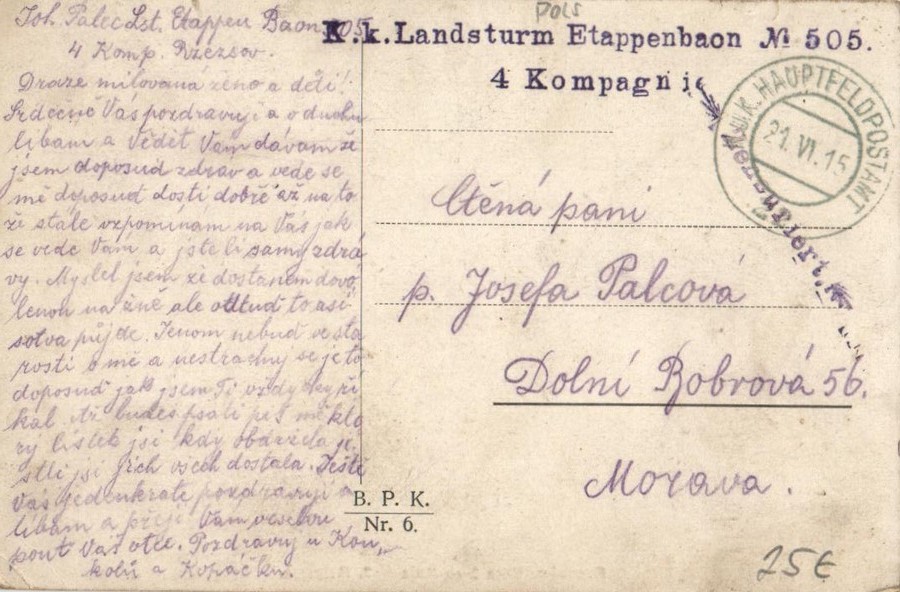 Joh. Palec Lst. Etappen Baon 505
4 Komp. Rzezsov.
Draze milovaná ženo a děti!
Srdečně Vás pozdravuji a v duchu
líbám a Vědět Vám dávam že
jsem doposud zdráv a vede se
mě doposud dosti dobře až na to
že stále vzpomínám na Vás jak
se vede Vám a jste li samy zdrá
vy. Myslel jsem že dostanem dovo
lenou na žně ale odtud to asi
sotva přijde. Jenom nebuď ve sta
rosti o mě a nestrachuj se je to
doposud jak jsem Ti vždycky ří
kal. Až budeš psáti piš mě kte
rý lístek jsi kdy obdržela je
stli jsi jich všech dostala. Ještě
Vás jedenkráte pozdravuji a
líbám a přeji Vám veselou
pouť Váš otec. Pozdravuj u Kou
kolů a Kopáčků.
Pols
K.k. Landsturm Etappenbaon № 505.
4 Kompagnie
K.u.K. HAUPTFELDPOSTAMT
21. VI. 15
Zensuriert.
Ctěná paní
p. Josefa Palcová
Dolní Bobrová 56.
Morava.
B. P. K.
Nr. 6.
25€